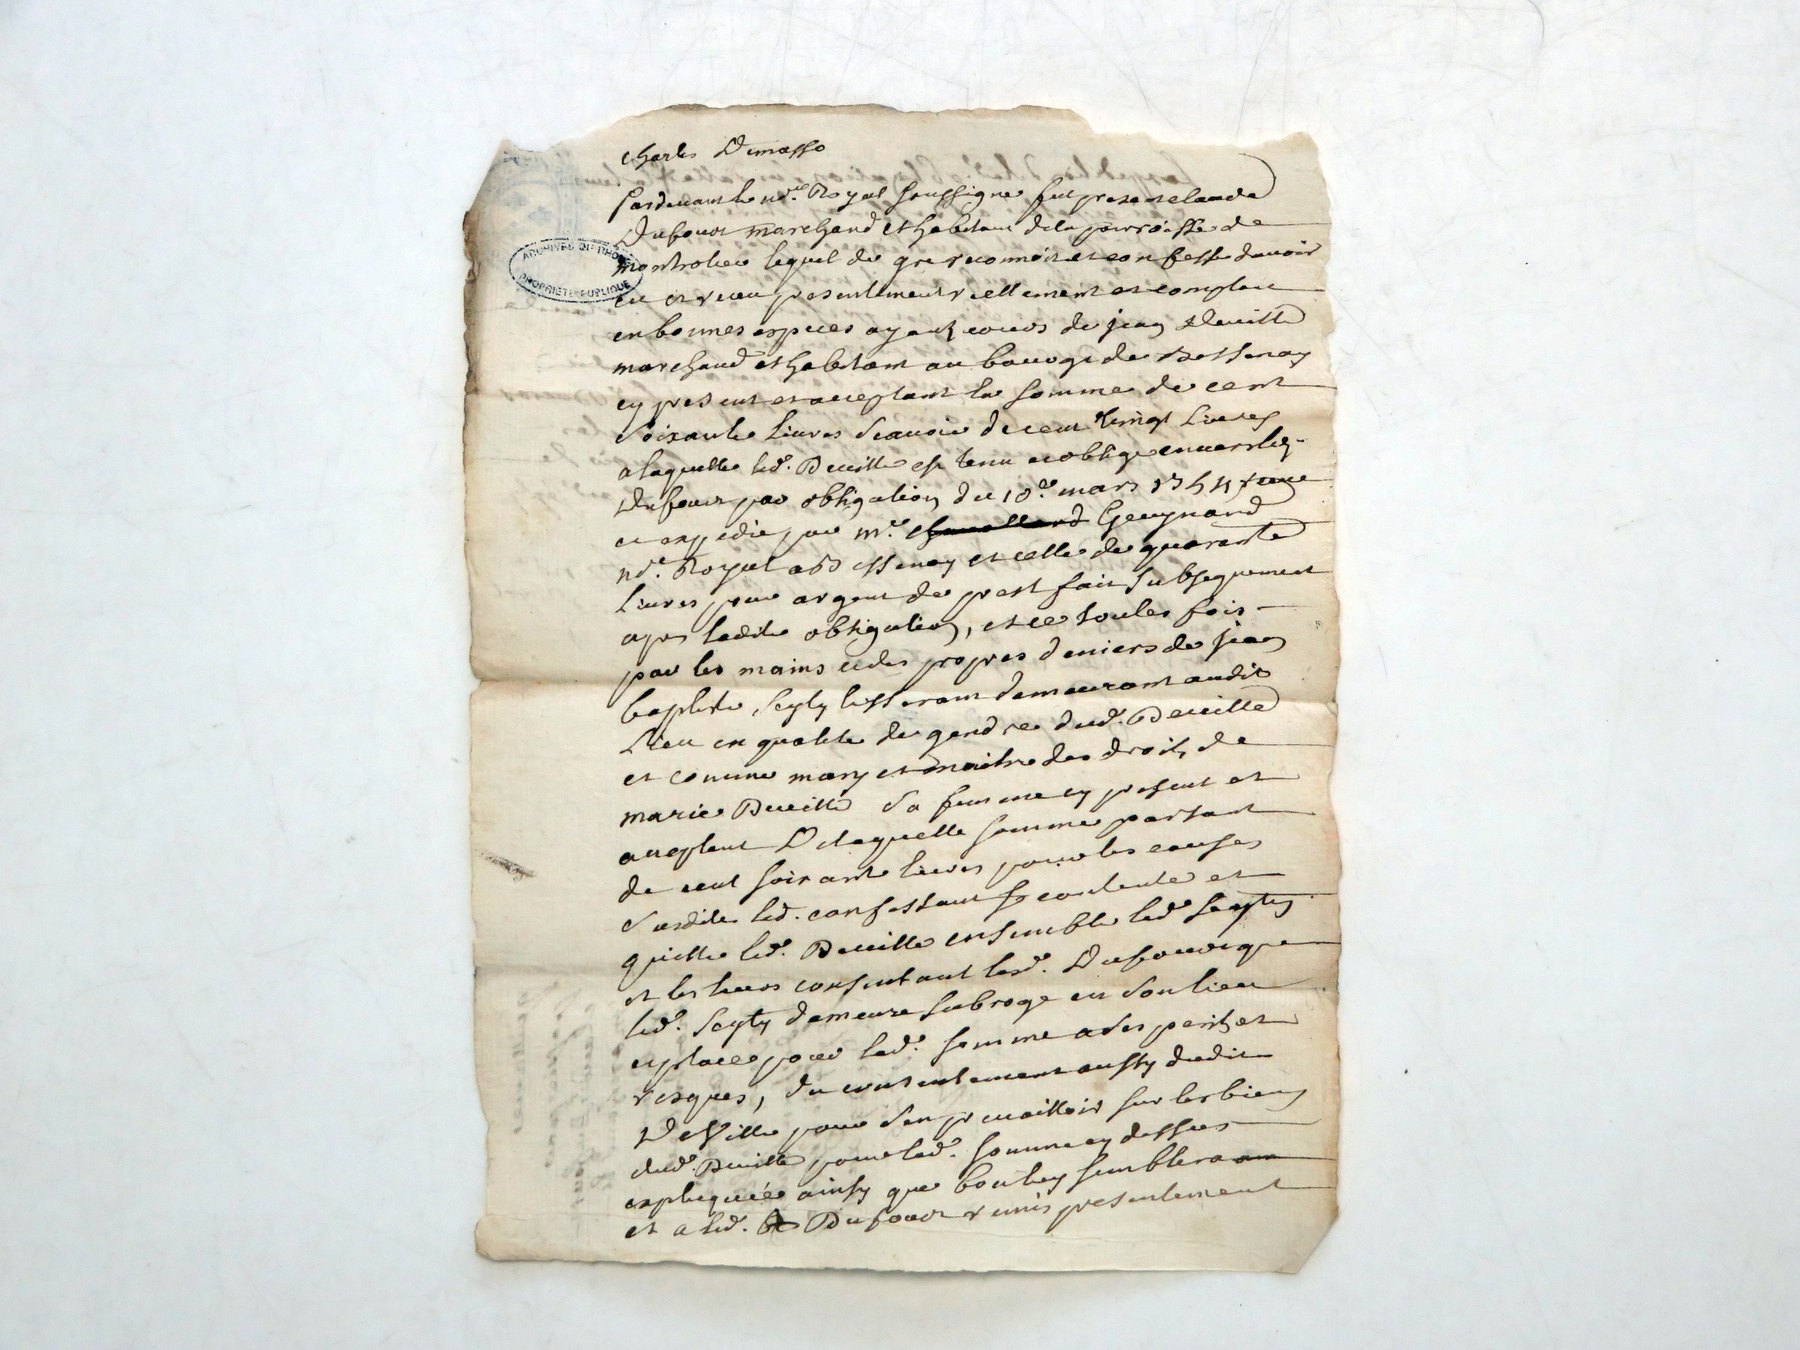 charles Demasso
Pardevant le nore. Royal soussigne fut present claude
Dufour marchand et habitant de la parroisse de
montrotier lequel de gre reconnoit et confesse davoir
eu et receu presentement reellement et comptant
en bonnes especes ayant cours de jean Deville
marchand et habitant au bourg de Bessenay
cy present et acceptant la somme de cent
soixante livres scavoir de cent vingt livres
a laquelle led. Deville est tenu et oblige envers led.
Dufour par obligation du 10e. mars receue
et expedie par me. Guynand
nore. Royal a Bessenay et celle de quarante
livres pour argent de prest fait subsequement
apres ladite obligation, et ce toutes fois
par les mains et des propres deniers de jean
baptiste tisserant demeurant audit
Lieu en qualite de gendre dud. Deville
et comme mary et maitre des droits de
marie Deville sa femme cy present et
acceptant De laquelle somme partant
de cent soixante livres pour les causes
susdites led. confessant se contente et
quitte led. Deville ensemble led.
et les leurs consentant led. Dufour que
led. demeure subroge en son lieu
et place pour lad. somme a ses perils et
risques, du consentement aussy dudit
DeVille pour s'en prevailloir sur les biens
dud. Deville pour lad. somme cy dessus
expliquée ainsy que bon luy semblera
et a led. Dufour remis presentement
ARCHIVES DU RHONE
PROPRIETE PUBLIQUE